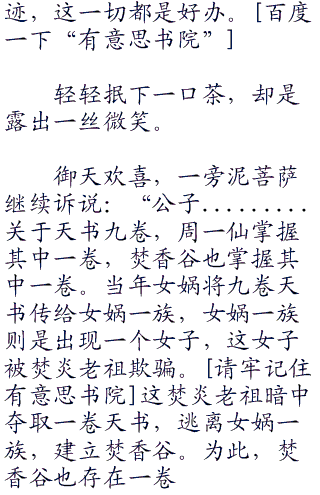 迹，这一切都是好办。[百度
一下“有意思书院”]
轻轻抿下一口茶，却是
露出一丝微笑。
御天欢喜，一旁泥菩萨
继续诉说：“公子.........
关于天书九卷，周一仙掌握
其中一卷，焚香谷也掌握其
中一卷。当年女娲将九卷天
书传给女娲一族，女娲一族
则是出现一个女子，这女子
被焚炎老祖欺骗。[请牢记住
有意思书院]这焚炎老祖暗中
夺取一卷天书，逃离女娲一
族，建立焚香谷。为此，焚
香谷也存在一卷